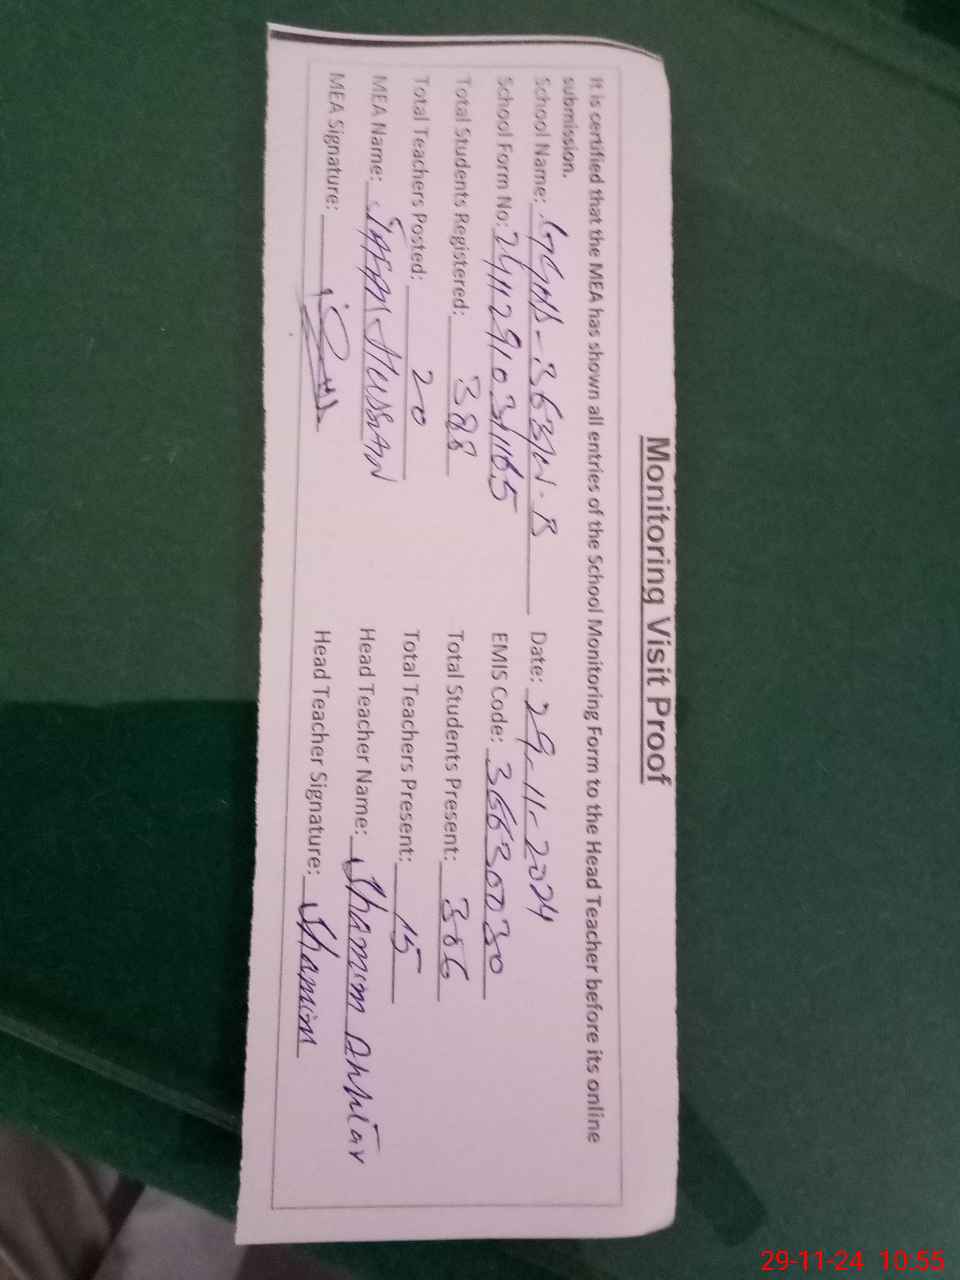 Monitoring Visit Proof
It is certified that the MEA has shown all entries of the School Monitoring Form to the Head Teacher before its online
submission.
School Name: GGHS-363/W.B Date: 29-11-2024
School Form No: EMIS Code: 36630030
Total Students Registered: 388 Total Students Present: 306
Total Teachers Posted: 20 Total Teachers Present: 15
MEA Name: Hussain Head Teacher Name: Shamim Akhtar
MEA Signature: Head Teacher Signature: Shamim
29-11-24 10:55